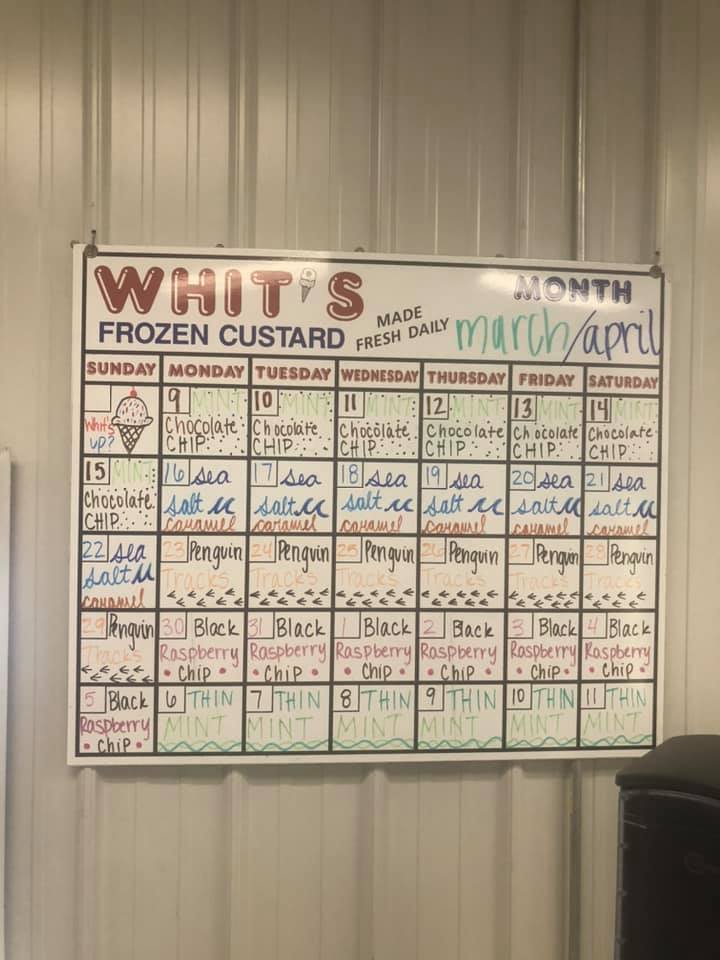 WHIT'S
FROZEN CUSTARD
MADE
FRESH DAILY
MONTH
march/april
SUNDAY MONDAY TUESDAY WEDNESDAY THURSDAY FRIDAY SATURDAY
Whit's
up?
9 MINT
Chocolate
CHIP
10 MINT
Chocolate
CHIP
11 MINT
Chocolate
CHIP
12 MINT
Chocolate
CHIP
13 MINT
Chocolate
CHIP
14 MINT
Chocolate
CHIP
15 MINT
Chocolate
CHIP
16 Sea
Salt
caramel
17 Sea
Salt
caramel
18 Sea
Salt
caramel
19 Sea
Salt
caramel
20 Sea
Salt
caramel
21 Sea
Salt
caramel
22 Sea
Salt
caramel
23 Penguin
Tracks
24 Penguin
Tracks
25 Penguin
Tracks
26 Penguin
Tracks
27 Penguin
Tracks
28 Penguin
Tracks
29 Penguin
Tracks
30 Black
Raspberry
Chip
31 Black
Raspberry
Chip
1 Black
Raspberry
Chip
2 Black
Raspberry
Chip
3 Black
Raspberry
Chip
4 Black
Raspberry
Chip
5 Black
Raspberry
Chip
6 THIN
MINT
7 THIN
MINT
8 THIN
MINT
9 THIN
MINT
10 THIN
MINT
11 THIN
MINT